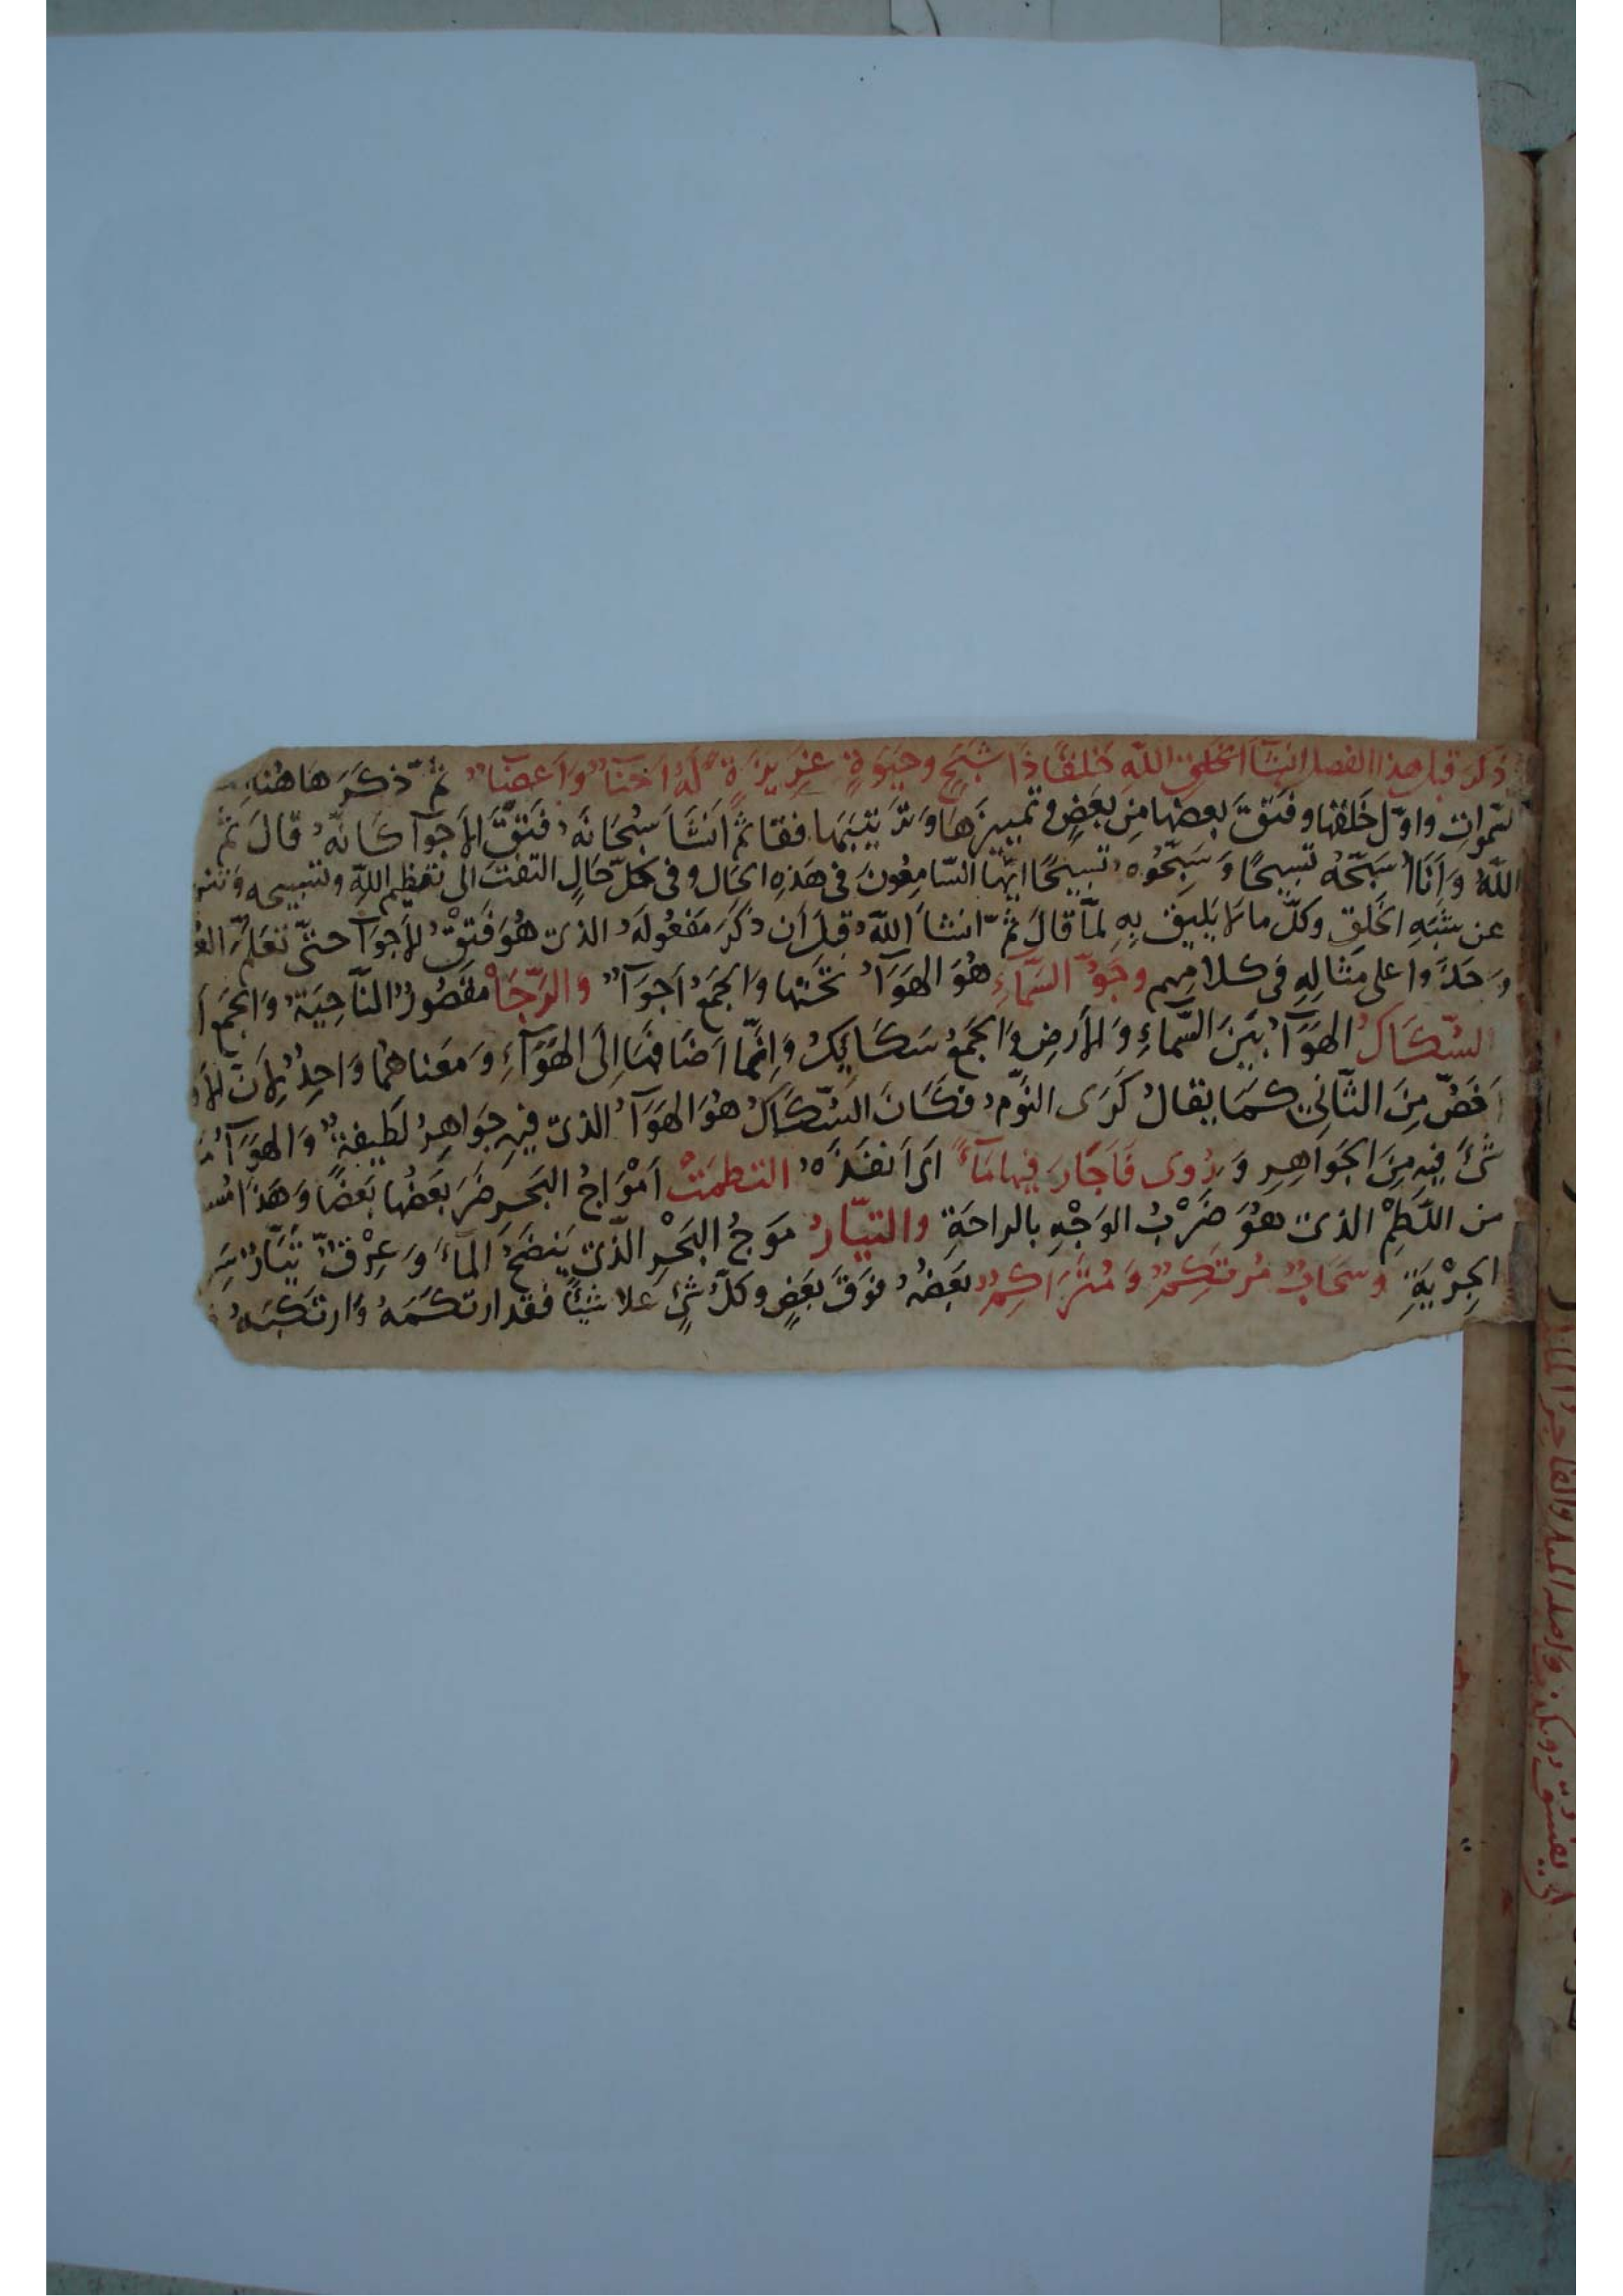 ذكر قبل هذا الفصل انشآ الخلق الله خلقًا ذا شبَحٍ وحيوةٍ غزيزةٍ لهُ احنآ وَاَعضآ ثمّ ذكَرَ هَاهُنا
لسّموات واوّل خلقها وفتقَ بعضها مِن بعَضٍ وتمييزهَا وَترتيبَها فقا ثمّ انشَأ سُبحَانهُ فتقَ الاَجوآ كانّه قالَ ثمّ
اللهُ وَاَنا اُسَبّحُه تسبيحًا وَسَبّحُوه تسبيحًا ايّها السّامِعُونَ في هَذِهِ الحَال وفي كلّ حَالٍ التفت الى تعَظيم اللهِ وتسبيحه
عن شَبَهِ الخَلقِ وكلّ ما لا يَليق بِهِ لمّا قالَ ثمّ انشأ اللهُ قبلَ اَن ذكرَ مَفعُولهُ الذى هُوَ فَتقْ الاَجوآ حتىّ تعَلم
وَحَذَوا على مثالِهِ في كلامهم وجَوّ السّماءِ هُوَ الهَوَآ تحَتَها وَالجَمعُ اَجوآ والرّجَا مقصُورٌ النّاحِيَة وَالجمعُ
السّكاكُ الهوَآ بَينَ السّماءِ وَالارضِ وَالجمعُ سَكَايكُ وَاِنّما اضافهَا اِلى الهَوآءِ وَمعَناهما وَاحِدٌ لاَنّ
اَخَصّ مِنَ الثّانى كمَا يقالُ كرَى النوّم فكَانَ السُّكاكُ هُوَ الهوَآ الذى فيهِ جوَاهِرُ لطيفةٌ وَالهَوَآ
شَئَ فيهِ مِنَ الجَوَاهِرِ وَرُوِى فاَجَارَ فيها مَآءً اَى اَنفذهُ التطمَتْ اَموَاجُ البَحرِ ضرَبَ بَعضُها بَعضًا وَهَذَا
من اللّطمِ الذى هُوَ ضَرْبُ الوَجْهِ بالراحَةِ والتيّارُ مَوجُ البَحْرِ الّذى يَنضحُ المآءَ وَعِرْقٌ تَيّارٌ
الجِرْيَةِ وسَحَابٌ مُرتكِمٌ وَمُترَاكِمٌ بَعضُهُ فوقَ بَعَضٍ وكلُّ شئٍ علا شيئًا فقد ارتكمَهُ وَارتكبَهُ